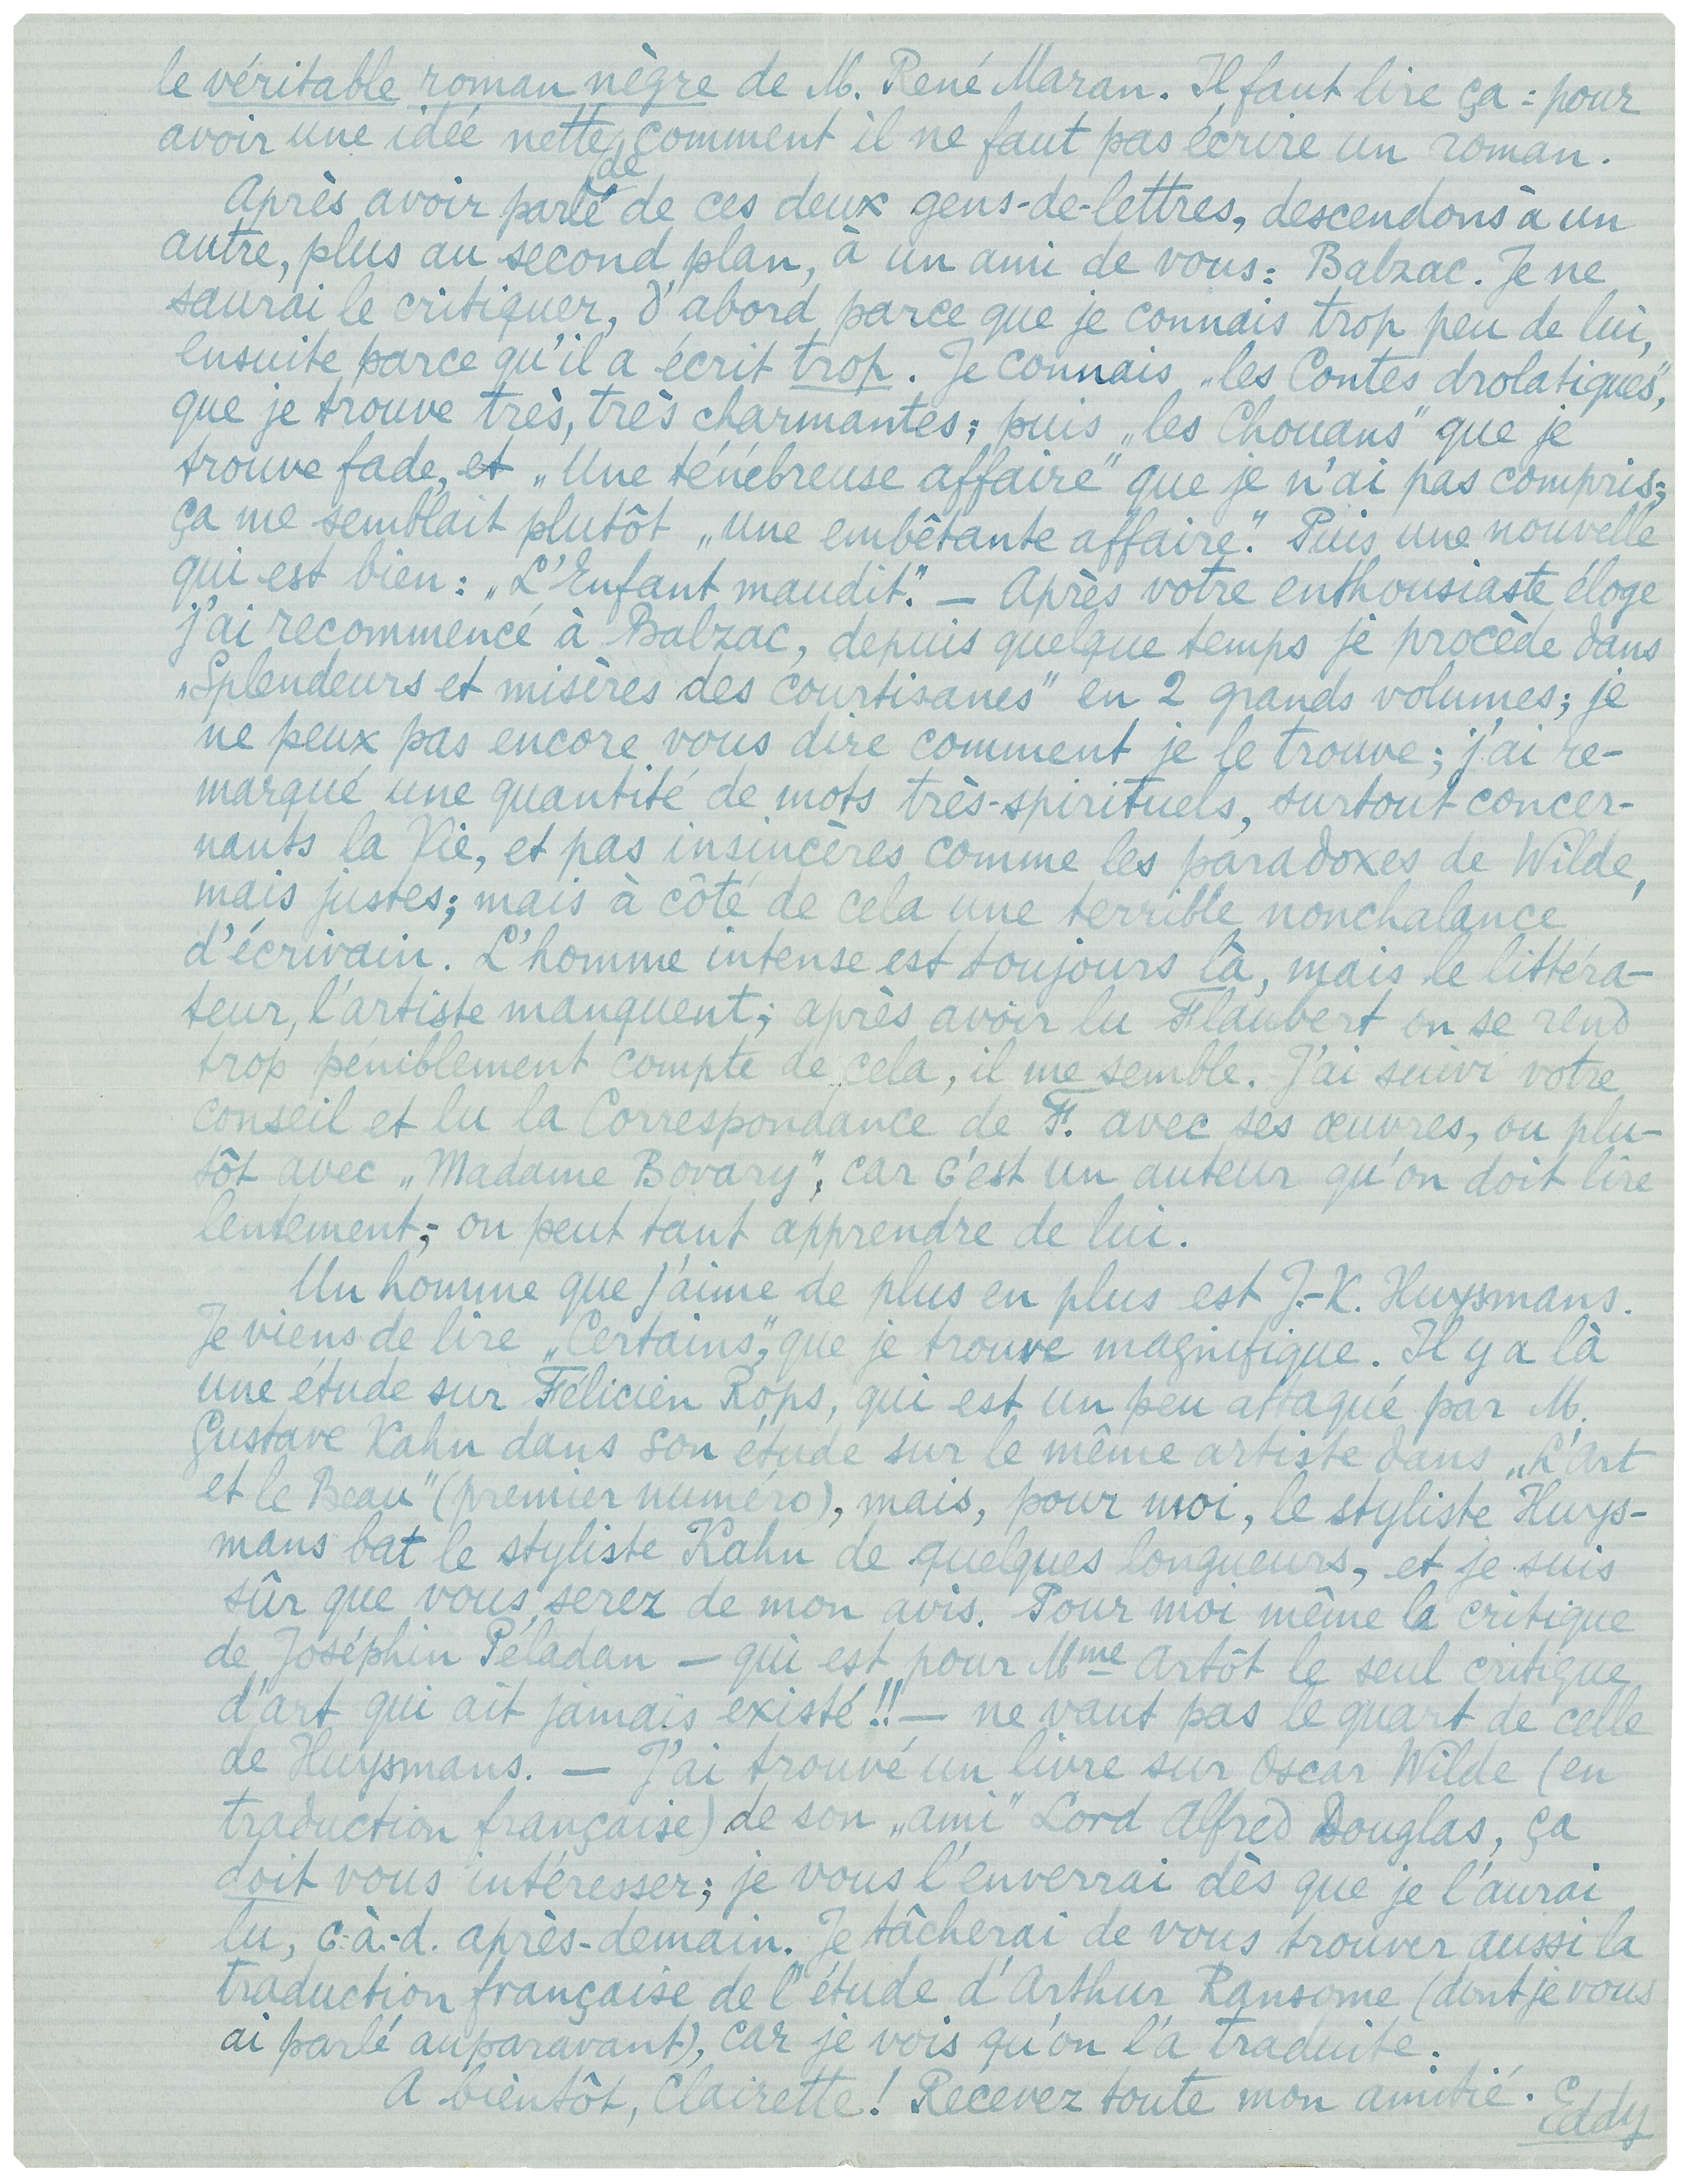 le véritable roman nègre de M. René Maran. Il faut lire ça : pour
avoir une idée nette de comment il ne faut pas écrire un roman.
Après avoir parlé de ces deux gens-de-lettres, descendons à un
autre, plus au second plan, à un ami de vous : Balzac. Je ne
saurai le critiquer, d'abord parce que je connais trop peu de lui,
ensuite parce qu'il a écrit trop. Je connais „les Contes drolatiques",
que je trouve très, très charmantes; puis „les Chouans" que je
trouve fade, et „Une ténébreuse affaire" que je n'ai pas compris;
ça me semblait plutôt „une embêtante affaire". Puis une nouvelle
qui est bien : „L'Enfant maudit". — Après votre enthousiaste éloge
j'ai recommencé à Balzac, depuis quelque temps je procède dans
„Splendeurs et misères des courtisanes" en 2 grands volumes; je
ne peux pas encore vous dire comment je le trouve; j'ai re-
marqué une quantité de mots très-spirituels, surtout concer-
nants la Vie, et pas insincères comme les paradoxes de Wilde,
mais justes; mais à côté de cela une terrible nonchalance
d'écrivain. L'homme intense est toujours là, mais le littéra-
teur, l'artiste manquent; après avoir lu Flaubert on se rend
trop péniblement compte de cela, il me semble. J'ai suivi votre
conseil et lu la Correspondance de F. avec ses œuvres, ou plu-
tôt avec „Madame Bovary", car c'est un auteur qu'on doit lire
lentement; on peut tant apprendre de lui.
Un homme que j'aime de plus en plus est J.-K. Huysmans.
Je viens de lire „Certains", que je trouve magnifique. Il y a là
une étude sur Félicien Rops, qui est un peu attaqué par M.
Gustave Kahn dans son étude sur le même artiste dans „L'Art
et le Beau" (premier numéro), mais, pour moi, le styliste Huys-
mans bat le styliste Kahn de quelques longueurs, et je suis
sûr que vous serez de mon avis. Pour moi même la critique
de Joséphin Péladan — qui est pour Mme Artôt le seul critique
d'art qui ait jamais existé !! — ne vaut pas le quart de celle
de Huysmans. — J'ai trouvé un livre sur Oscar Wilde (en
traduction française) de son „ami" Lord Alfred Douglas, ça
doit vous intéresser; je vous l'enverrai dès que je l'aurai
lu, c.-à.-d. après-demain. Je tâcherai de vous trouver aussi la
traduction française de l'étude d'Arthur Ransome (dont je vous
ai parlé auparavant), car je vois qu'on l'a traduite.
A bientôt, Clairette! Recevez toute mon amitié. Eddy